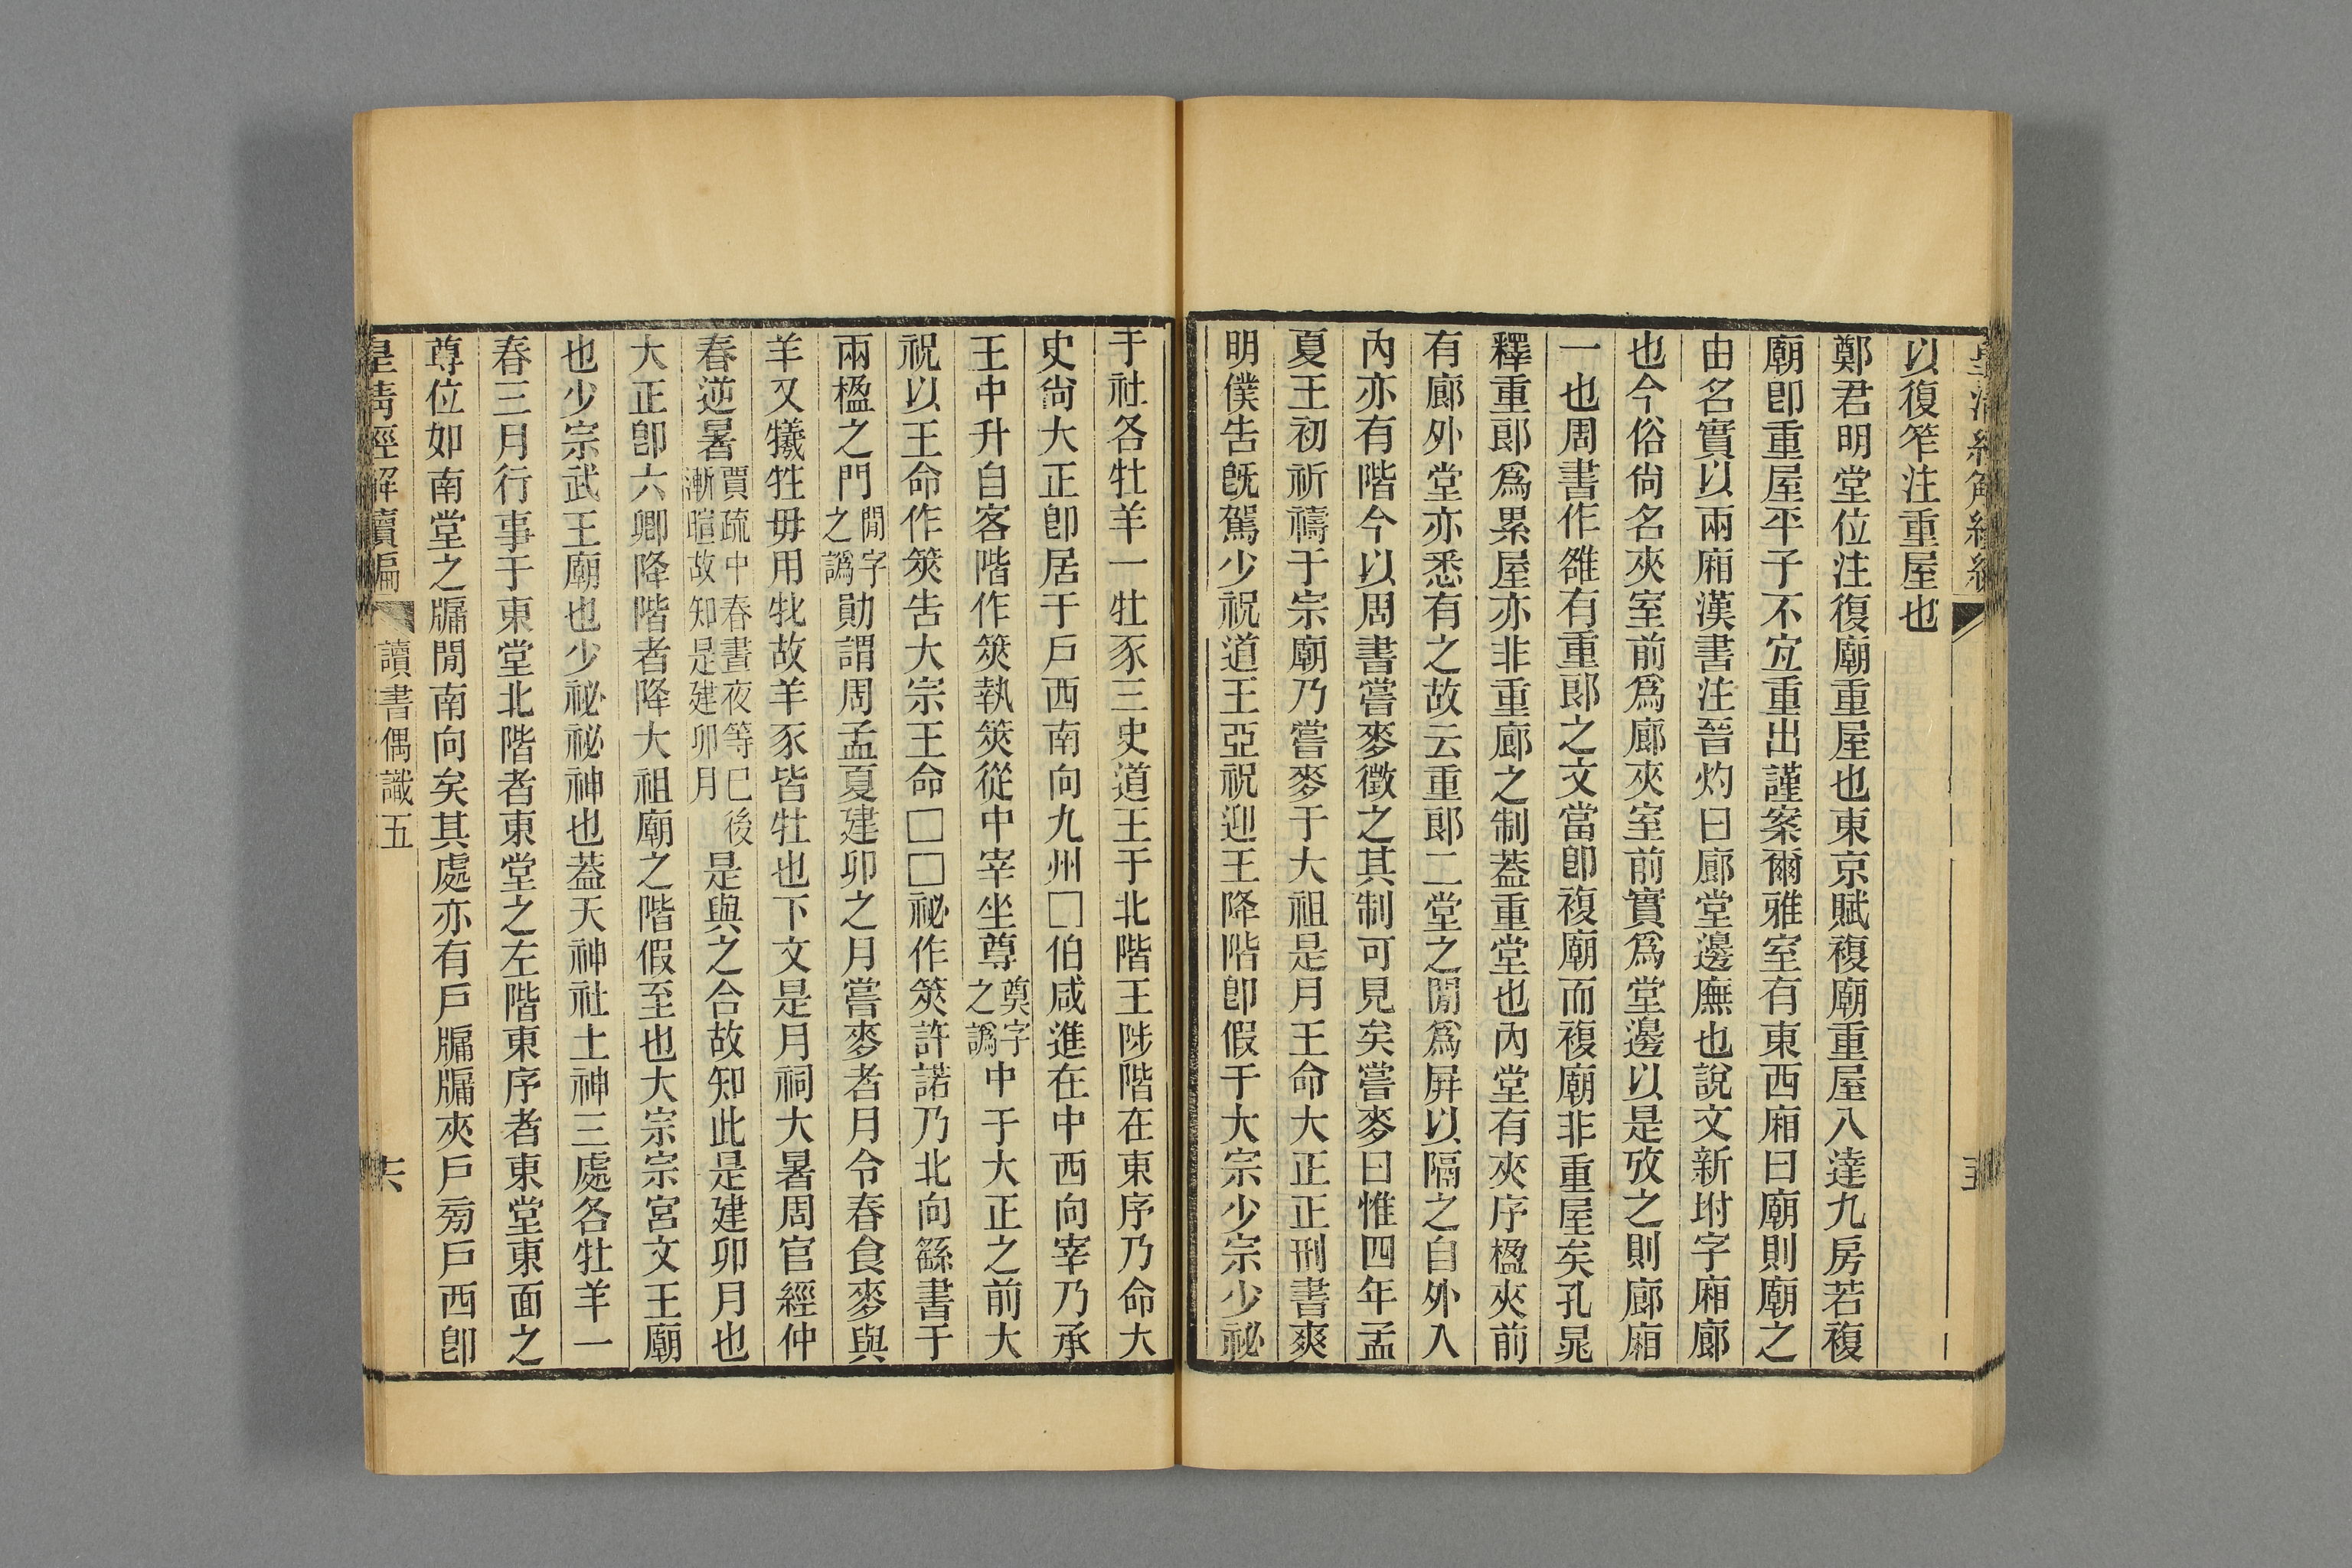 以復笮注重屋也
鄭君明堂位注復廟重屋也東京賦複廟重屋八達九房若複
廟卽重屋平子不宐重出謹案爾雅室有東西廂曰廟則廟之
由名實以兩廂漢書注晉灼曰廊堂邊廡也說文新坿字廂廊
也今俗尙名夾室前爲廊夾室前實爲堂邊以是攷之則廊廂
一也周書作雒有重郞之文當卽複廟而複廟非重屋矣孔晁
釋重郞爲累屋亦非重廊之制葢重堂也內堂有夾序楹夾前
有廊外堂亦悉有之故云重郞二堂之閒爲屛以隔之自外入
內亦有階今以周書嘗麥徵之其制可見矣嘗麥曰惟四年孟
夏王初祈禱于宗廟乃嘗麥于大祖是月王命大正正刑書爽
明僕告旣駕少祝道王亞祝迎王降階卽假于大宗少宗少祕
于社各牡羊一牡豕三史道王于北階王陟階在東序乃命大
史尙大正卽居于戶西南向九州□伯咸進在中西向宰乃承
王中升自客階作筴執筴從中宰坐尊奠字之譌中于大正之前大
祝以王命作筴告大宗王命□□祕作筴許諾乃北向繇書于
兩楹之門閒字之譌勛謂周孟夏建卯之月嘗麥者月令春食麥與
羊又犧牲毋用牝故羊豕皆牡也下文是月祠大暑周官經仲
春逆暑賈疏中春晝夜等已後漸暄故知是建卯月是與之合故知此是建卯月也
大正卽六卿降階者降大祖廟之階假至也大宗宗宮文王廟
也少宗武王廟也少祕祕神也葢天神社土神三處各牡羊一
春三月行事于東堂北階者東堂之左階東序者東堂東面之
尊位如南堂之牖閒南向矣其處亦有戶牖牖夾戶旁戶西卽
皇淸經解續編
讀書偶識五